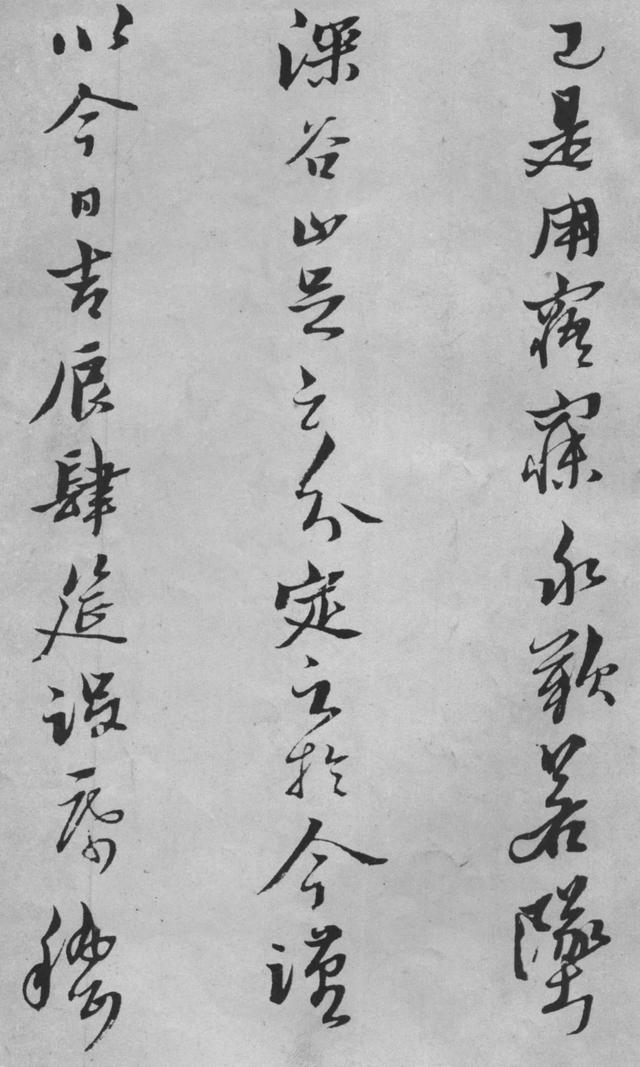 已是用寤寐永歎若墜
深谷止足之分定之於今謹
以今日吉辰肆筵設席稽